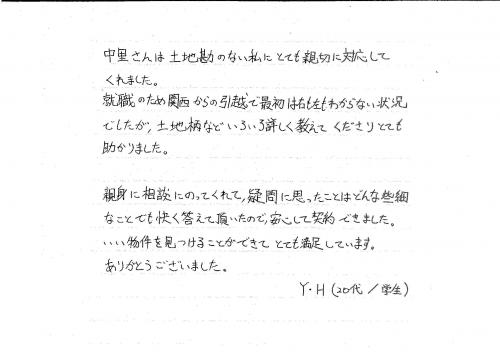 中里さんは土地勘のない私にとても親切に対応して
くれました。
就職のため関西からの引越で最初は右も左もわからない状況
でしたが、土地柄などいろいろ詳しく教えてくださりとても
助かりました。
親身に相談にのってくれて、疑問に思ったことはどんな些細
なことでも快く答えて頂いたので、安心して契約できました。
いい物件を見つけることができてとても満足しています。
ありがとうございました。
Y・H (20代/学生)